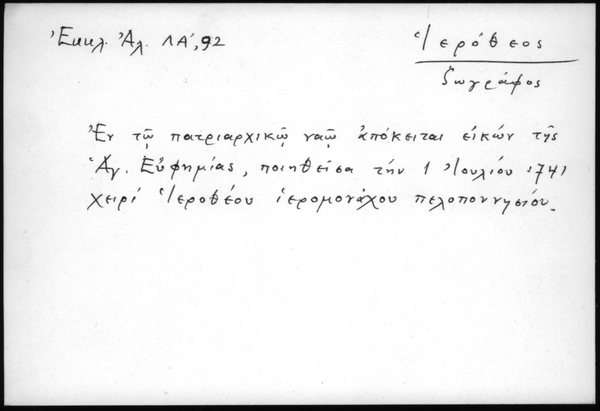 Ἐκκλ. Ἀλ. ΛΑ', 92
Ἱερόθεος
ζωγράφος
Ἐν τῷ πατριαρχικῷ ναῷ ἀπόκειται εἰκών τῆς
Ἁγ. Εὐφημίας, ποιηθεῖσα τήν 1 Ἰουλίου 1741
χειρί Ἱεροθέου ἱερομονάχου πελοποννησίου.